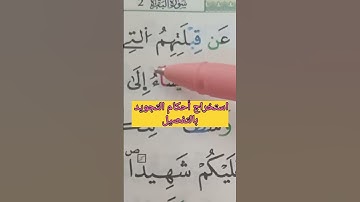 سورة البقرة 2
عَن قِبْلَتِهِمُ ٱلَّتِي
يَشَآءُ إِلَىٰ
استخراج أحكام التجويد
بالتفصيل
عَلَيْكُمْ شَهِيدًا